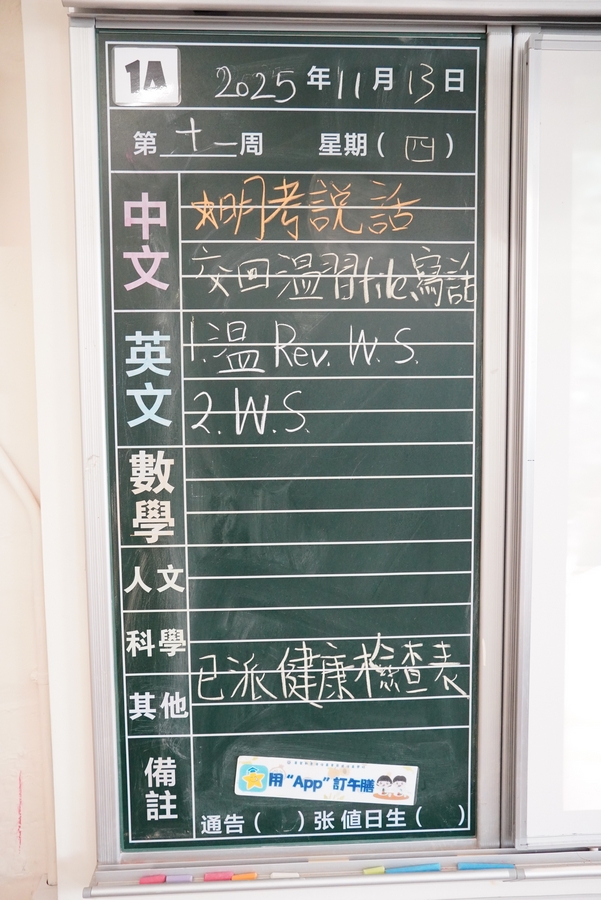 1A 2025年11月13日
第十一周 星期(四)
中文
明考說話
交回溫習file、寫話
英文
1.溫 Rev. W.S.
2. W.S.
數學
人文
科學
其他
已派健康檢查表
備註
用“App”訂午膳
通告( )张 值日生( )